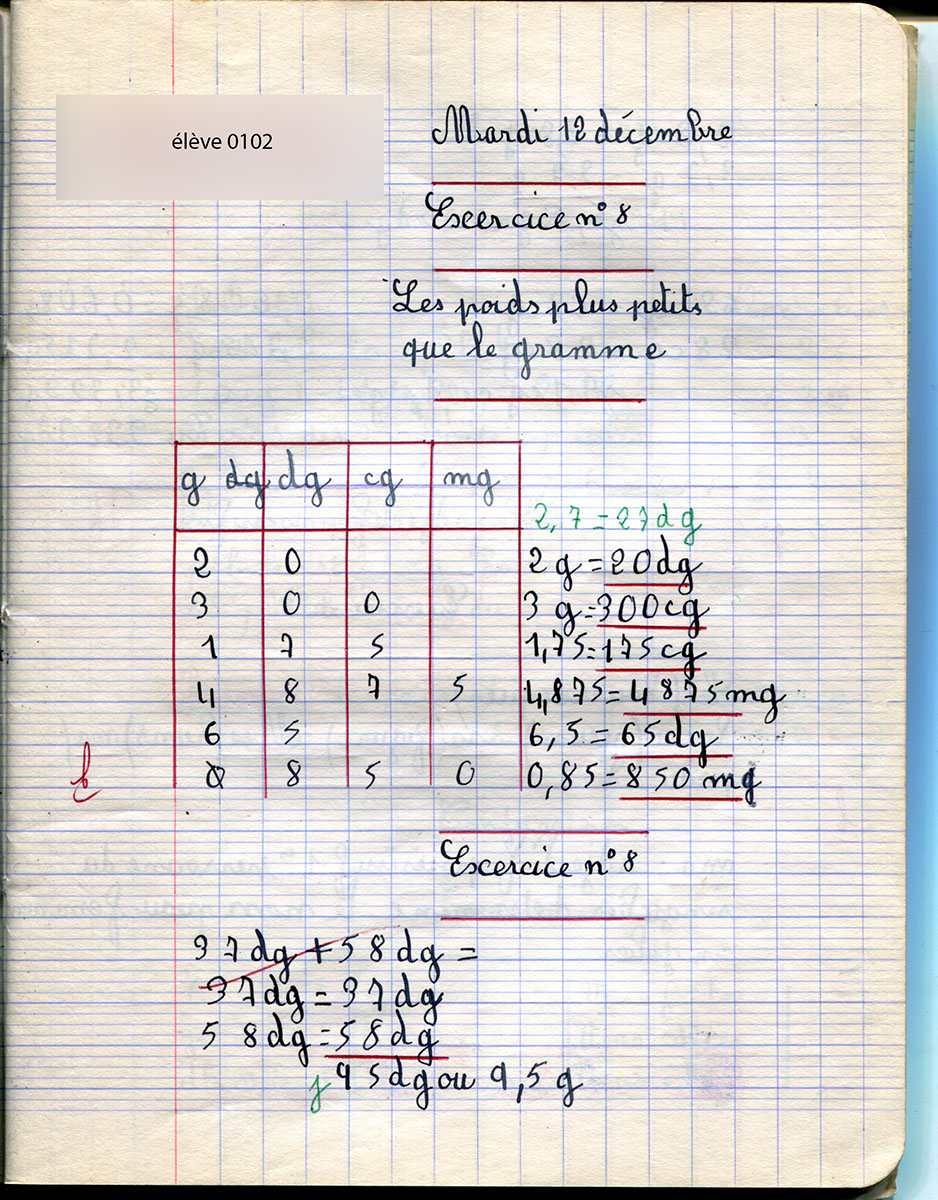 élève 0102
Mardi 12 décembre
Excercice n° 8
Les poids plus petits
que le gramme
g dg dg cg mg
2,7 = 27dg
2 0 2 g = 20dg
3 0 0 3 g = 300cg
1 7 5 1,75 = 175 cg
4 8 7 5 4,875 = 4875 mg
6 5 6,5 = 65 dg
0 8 5 0 0,85 = 850 mg
Excercice n° 8
37 dg + 58 dg =
37dg = 37dg
58dg = 58dg
95dg ou 9,5 g